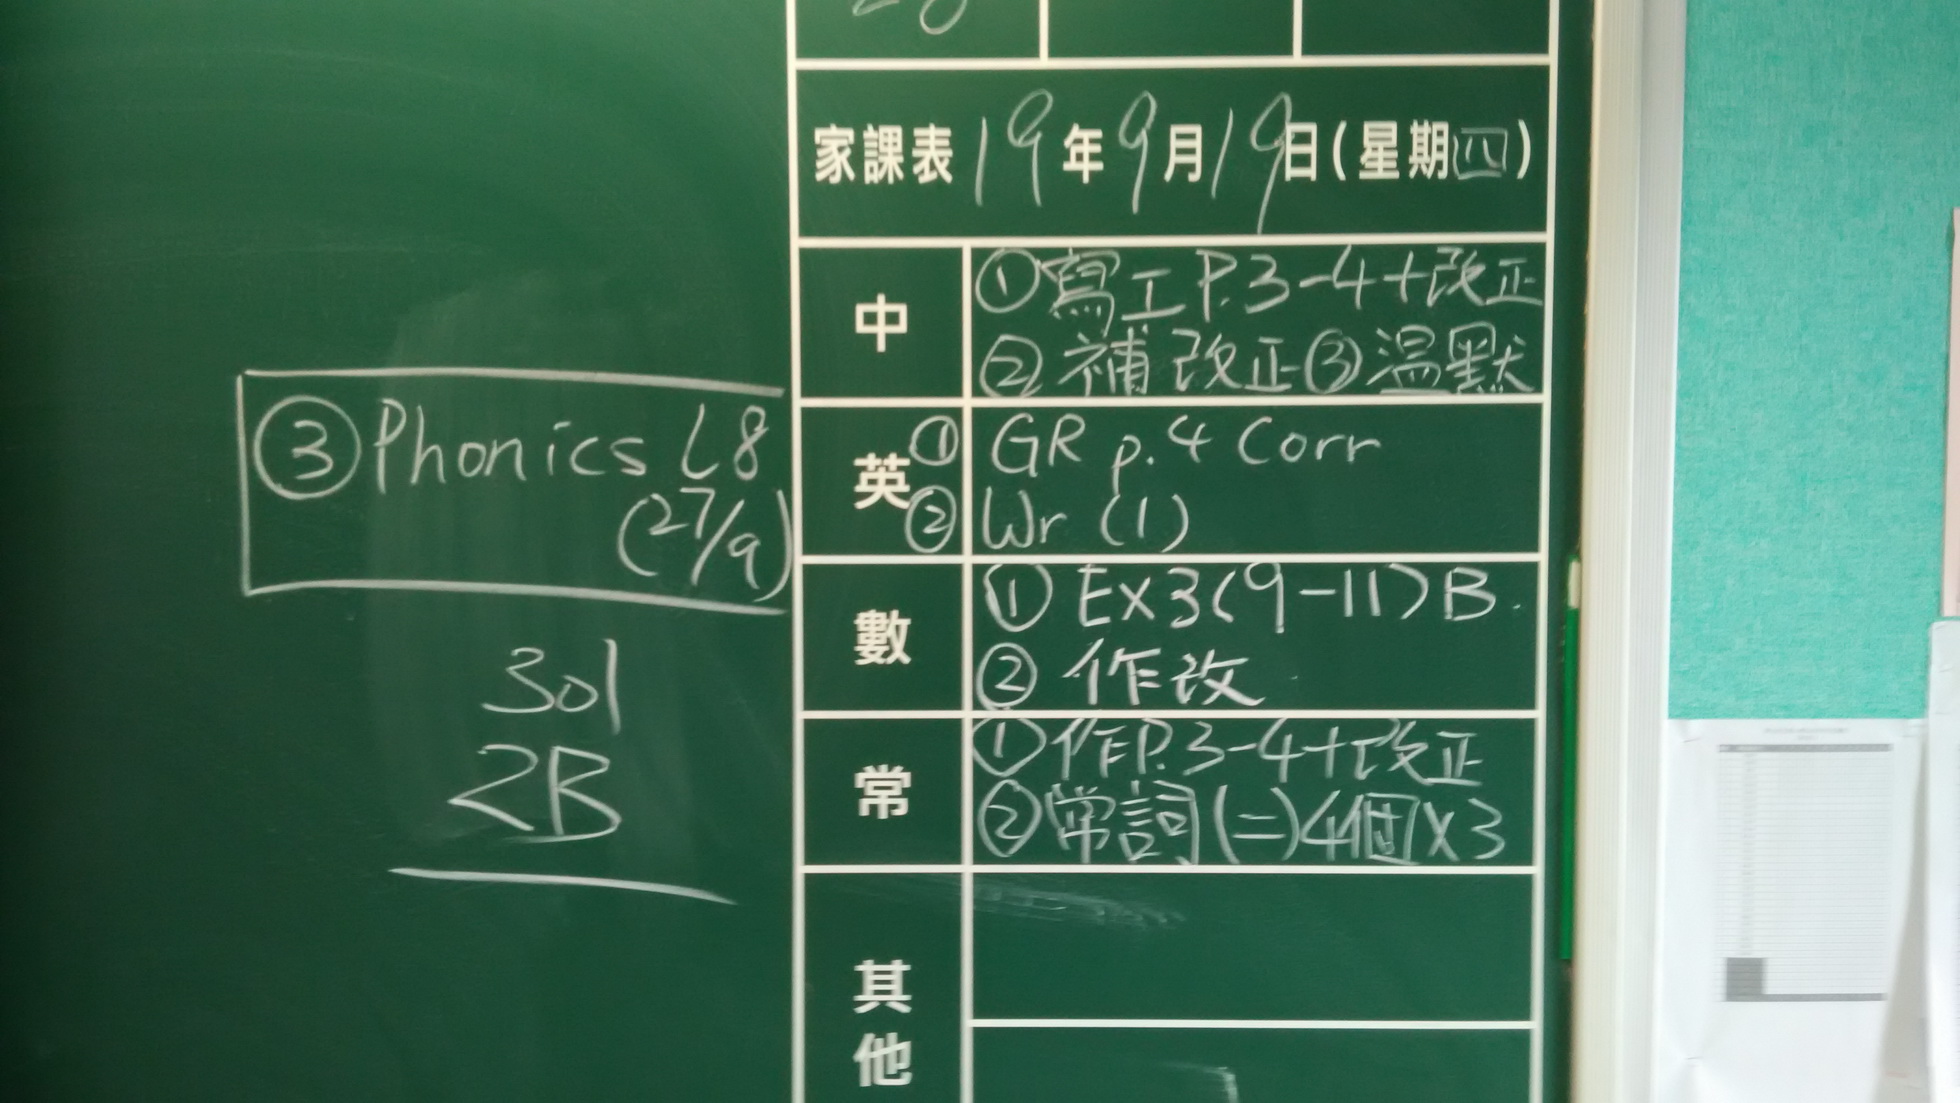 家課表 19年9月19日(星期四)
中
①寫工P.3-4+改正
②補改正③溫默
英
① GR p.4 Corr
② Wr (1)
③ Phonics L8
(27/9)
數
① Ex3(9-11)B.
② 作改
常
①作P.3-4+改正
②常詞(二)4個x3
其他
301
2B